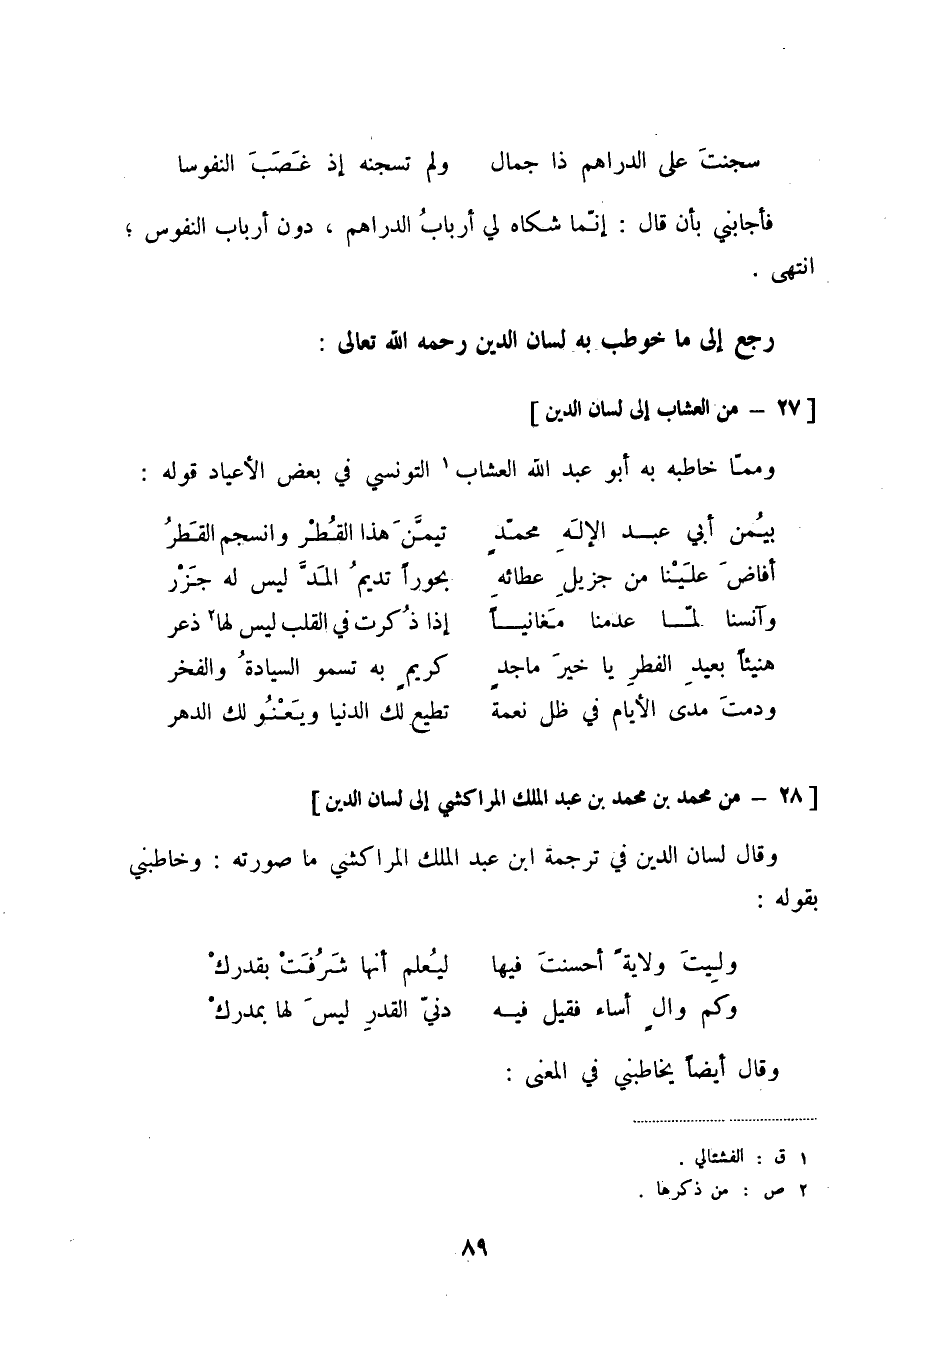 سجنتَ على الدراهم ذا جمال ولم تسجنه إذ غَصَبَ النفوسا
فأجابني بأن قال : إنّما شكاه لي أربابُ الدراهم ، دون أرباب النفوس ؛
انتهى .
رجع إلى ما خوطب به لسان الدين رحمه الله تعالى :
[ ٢٧ – من العشاب إلى لسان الدين ]
وممّا خاطبه به أبو عبد الله العشاب ١ التونسي في بعض الأعياد قوله :
بيُمن أبي عبد الإلَهِ محمّدٍ تيمَّنَ هذا القُطْر وانسجم القَطرُ
أفاضَ علَيْنا من جزيلِ عطائهِ بحوراً تديمُ المَدَّ ليس له جَزْر
وآنسنا لمّا عدمنا مَغانياً إذا ذُكرت في القلب ليس لها٢ ذعر
هنيئاً بعيدِ الفطرِ يا خيرَ ماجدٍ كريمٍ به تسمو السيادةُ والفخر
ودمتَ مدى الأيام في ظل نعمة تطيع لك الدنيا ويَعْنُو لك الدهر
[ ٢٨ – من محمد بن محمد بن عبد الملك المراكشي إلى لسان الدين ]
وقال لسان الدين في ترجمة ابن عبد الملك المراكشي ما صورته : وخاطبني
بقوله :
ولِيتَ ولايةً أحسنتَ فيها ليُعلم أنها شَرُفَتْ بقدركْ
وكم والٍ أساء فقيل فيه دنيّ القدرِ ليسَ لها بمدركْ
وقال أيضاً يخاطبني في المعنى :
١ ق : الفشتالي .
٢ ص : من ذكرها .
٨٩